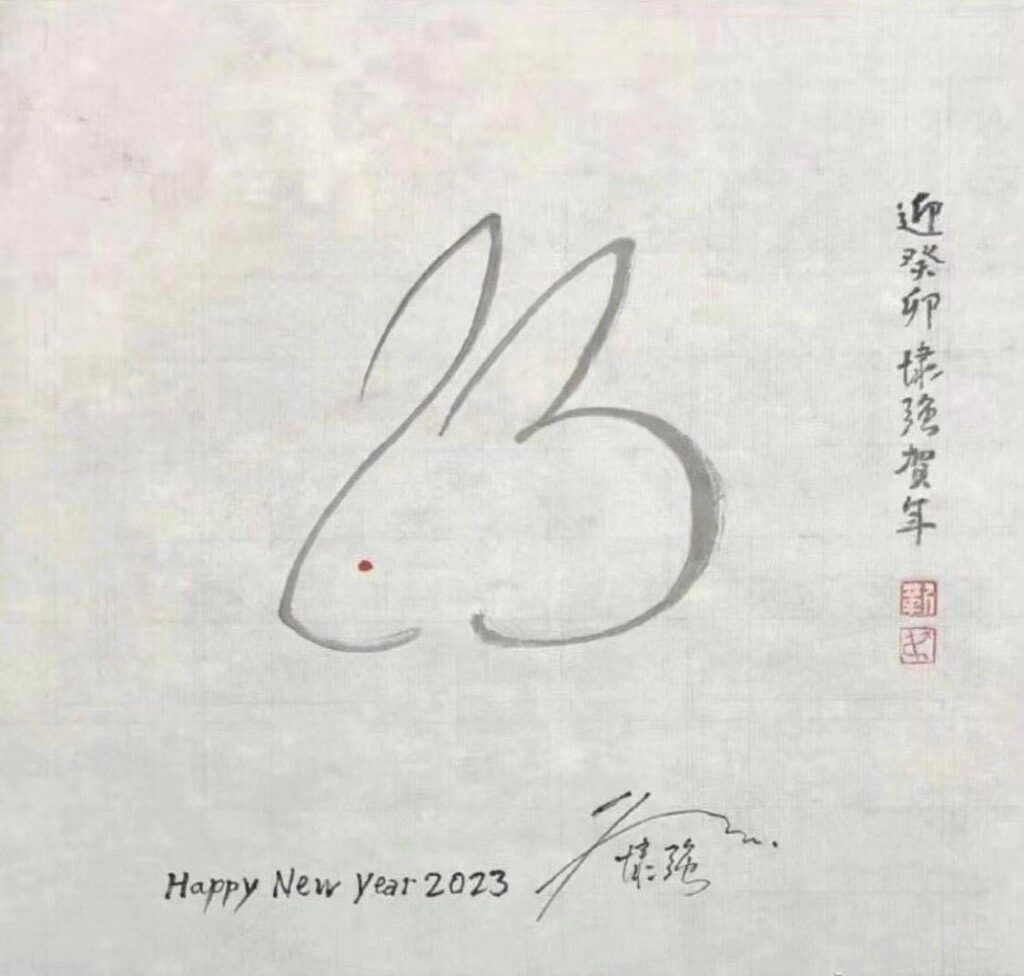 迎癸卯埭強賀年
靳
Happy New Year 2023
埭強